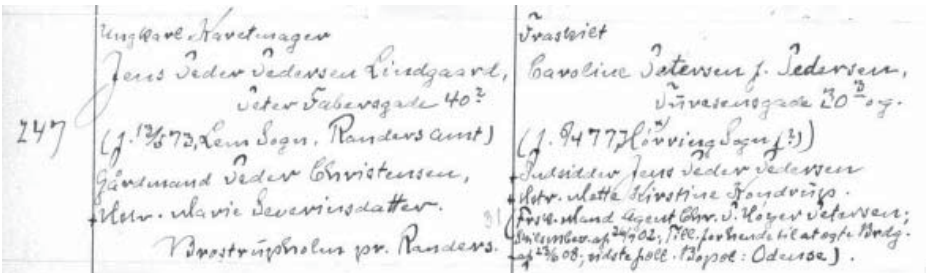 247
Ungkarl Karetmager
Jens Peder Pedersen Lindgaard,
Peter Fabersgade 40²
(f. 12/5 73, Lem Sogn, Randers Amt)
Gårdmand Peder Christensen,
+ Hstr. Marie Severinsdatter.
Brostrupholm pr. Randers.
Fraskilt
Caroline Petersen f. Pedersen,
Turesensgade 20 3 og.
(f. 9/4 77, Sogn (?))
Indsidder Jens Peder Pedersen
+ Hstr. Mette Kirstine Kondrup.
(Frsk. Mand Agent Chr. P. Høyer Petersen;
Skilsm.bev. af 24/9 02; Till. for hende til at ægte Brdg.
af 23/6 08; sidste fæll. Bopæl: Odense).